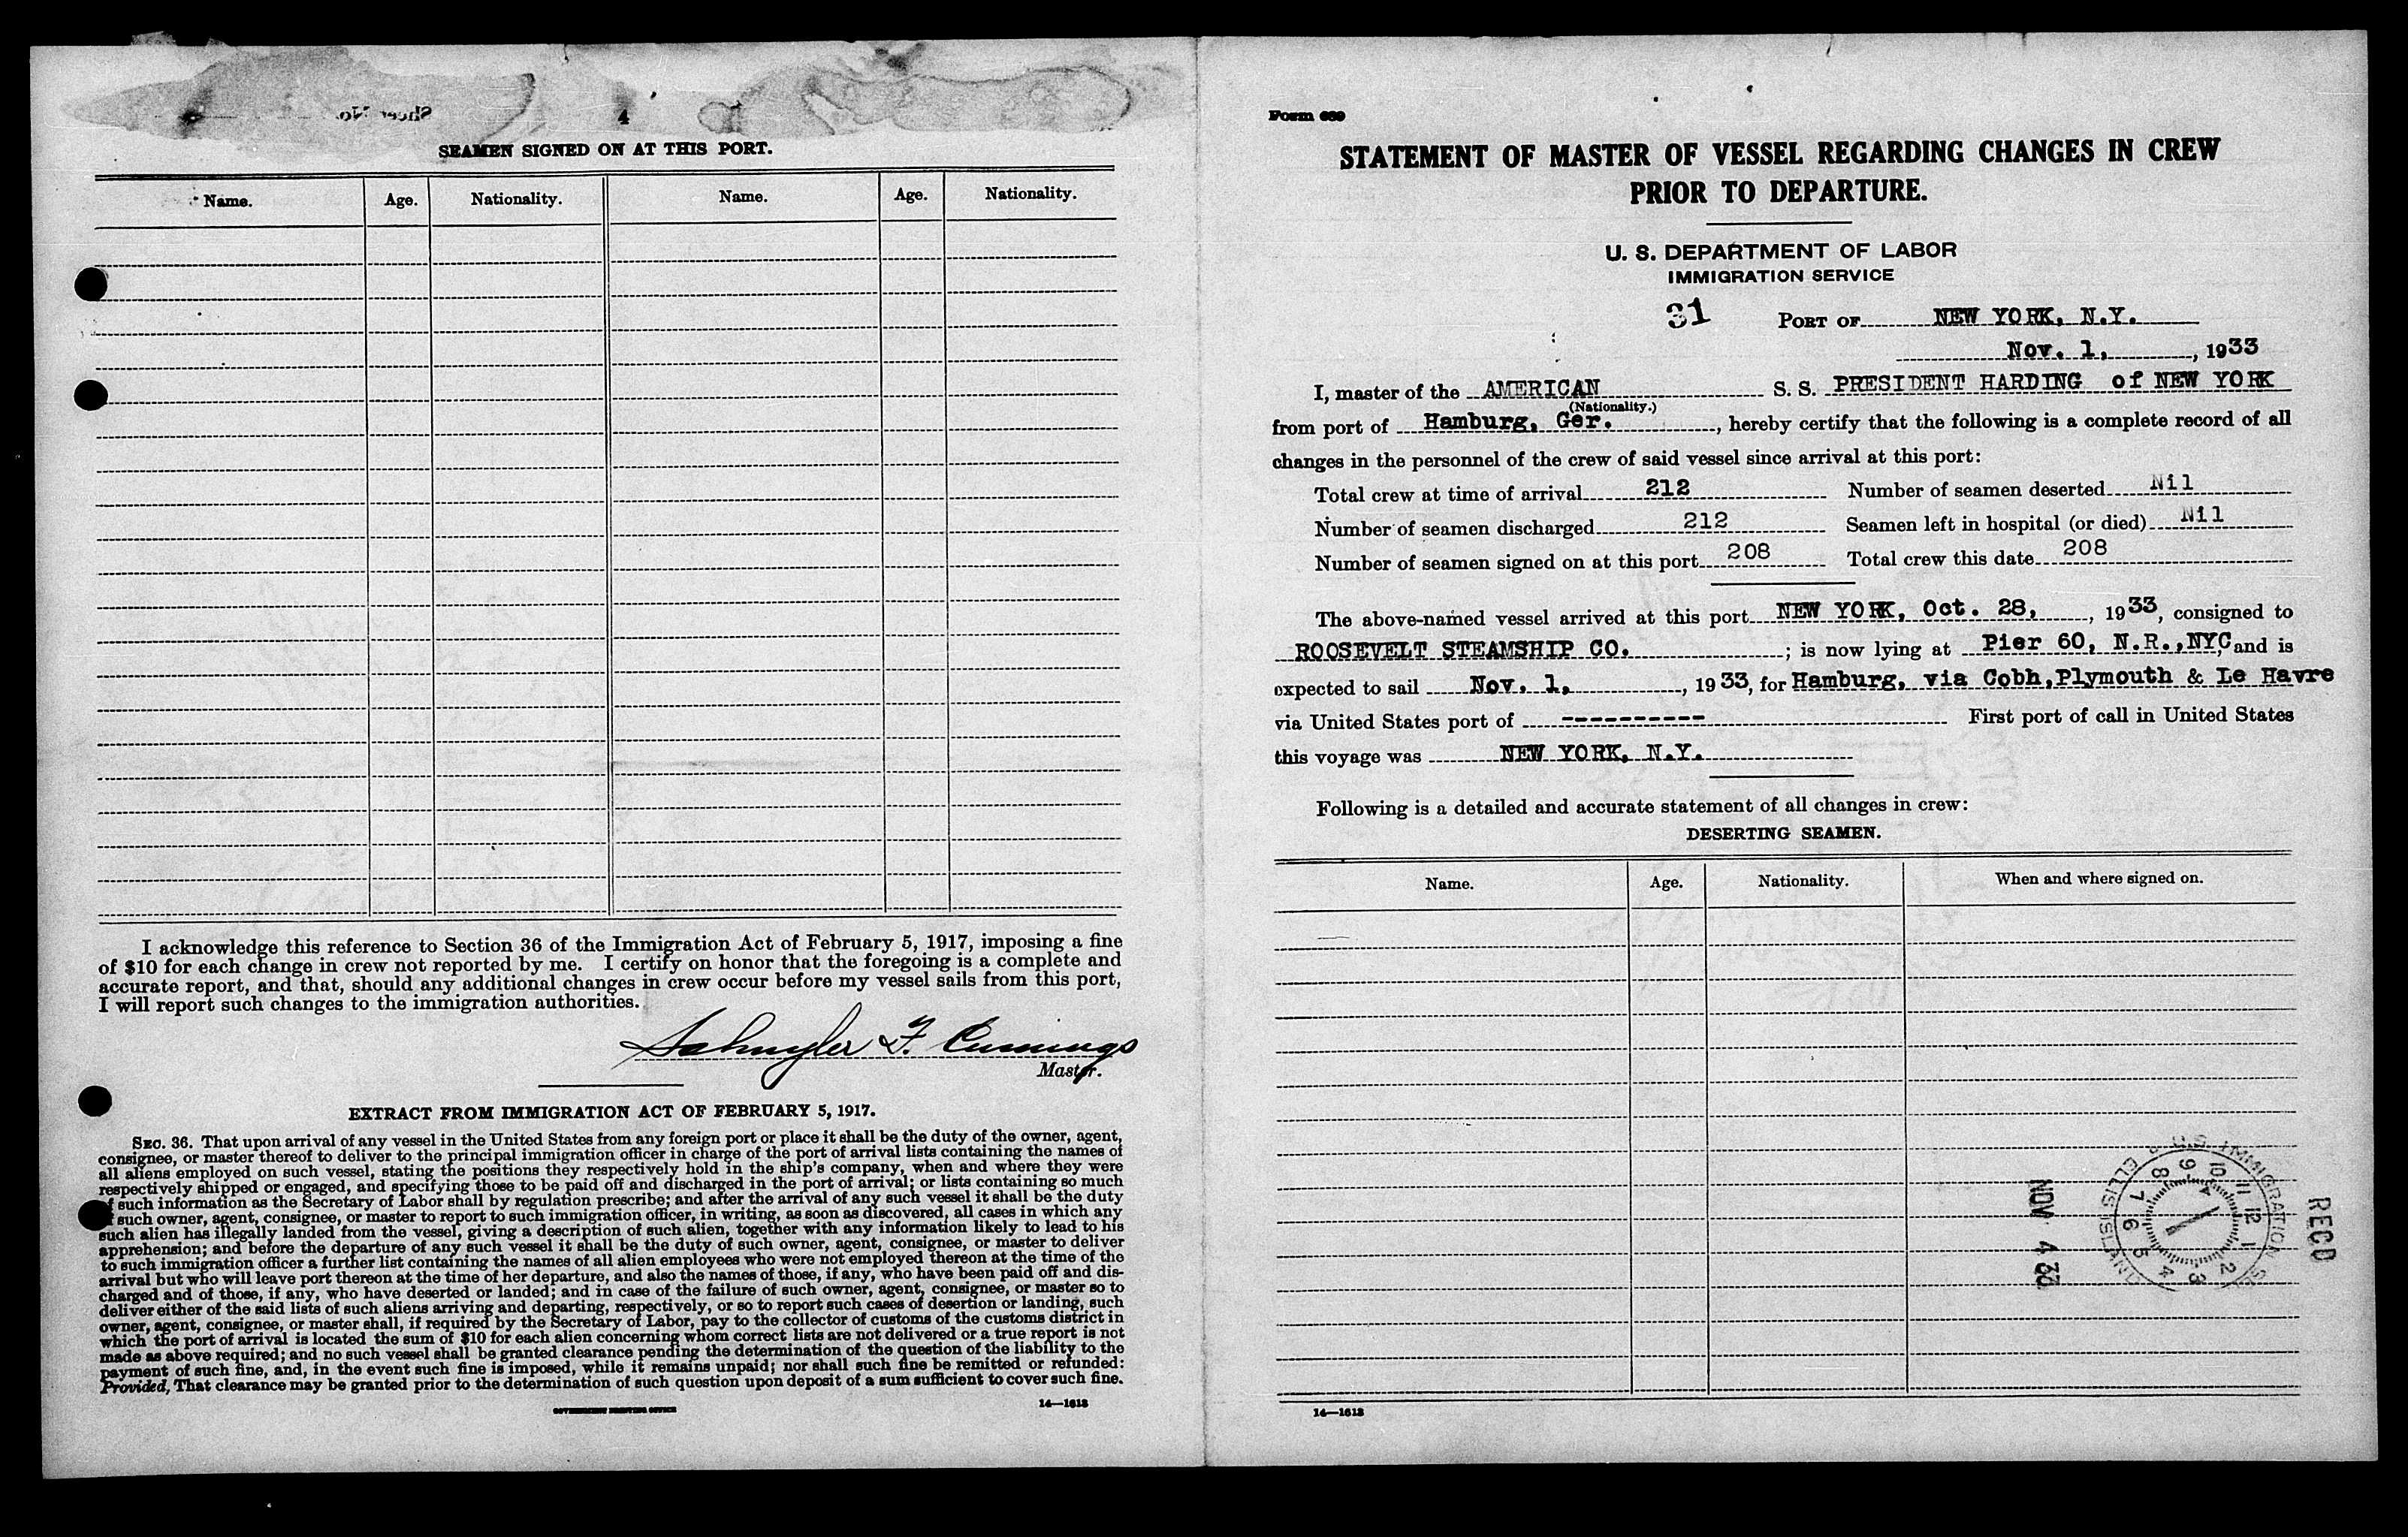 4
SEAMEN SIGNED ON AT THIS PORT.
Name. Age. Nationality. Name. Age. Nationality.
I acknowledge this reference to Section 36 of the Immigration Act of February 5, 1917, imposing a fine
of $10 for each change in crew not reported by me. I certify on honor that the foregoing is a complete and
accurate report, and that, should any additional changes in crew occur before my vessel sails from this port,
I will report such changes to the immigration authorities.
Schuyler F. Cummings
Master.
EXTRACT FROM IMMIGRATION ACT OF FEBRUARY 5, 1917.
SEC. 36. That upon arrival of any vessel in the United States from any foreign port or place it shall be the duty of the owner, agent,
consignee, or master thereof to deliver to the principal immigration officer in charge of the port of arrival lists containing the names of
all aliens employed on such vessel, stating the positions they respectively hold in the ship's company, when and where they were
respectively shipped or engaged, and specifying those to be paid off and discharged in the port of arrival; or lists containing so much
of such information as the Secretary of Labor shall by regulation prescribe; and after the arrival of any such vessel it shall be the duty
of such owner, agent, consignee, or master to report to such immigration officer, in writing, as soon as discovered, all cases in which any
such alien has illegally landed from the vessel, giving a description of such alien, together with any information likely to lead to his
apprehension; and before the departure of any such vessel it shall be the duty of such owner, agent, consignee, or master to deliver
to such immigration officer a further list containing the names of all alien employees who were not employed thereon at the time of the
arrival but who will leave port thereon at the time of her departure, and also the names of those, if any, who have been paid off and dis-
charged and of those, if any, who have deserted or landed; and in case of the failure of such owner, agent, consignee, or master so to
deliver either of the said lists of such aliens arriving and departing, respectively, or so to report such cases of desertion or landing, such
owner, agent, consignee, or master shall, if required by the Secretary of Labor, pay to the collector of customs of the customs district in
which the port of arrival is located the sum of $10 for each alien concerning whom correct lists are not delivered or a true report is not
made as above required; and no such vessel shall be granted clearance pending the determination of the question of the liability to the
payment of such fine, and, in the event such fine is imposed, while it remains unpaid; nor shall such fine be remitted or refunded:
Provided, That clearance may be granted prior to the determination of such question upon deposit of a sum sufficient to cover such fine.
GOVERNMENT PRINTING OFFICE 14—1613
Form 689
STATEMENT OF MASTER OF VESSEL REGARDING CHANGES IN CREW
PRIOR TO DEPARTURE.
U. S. DEPARTMENT OF LABOR
IMMIGRATION SERVICE
31 PORT OF NEW YORK, N.Y.
Nov. 1, , 1933
I, master of the AMERICAN S. S. PRESIDENT HARDING of NEW YORK
(Nationality.)
from port of Hamburg, Ger. , hereby certify that the following is a complete record of all
changes in the personnel of the crew of said vessel since arrival at this port:
Total crew at time of arrival 212 Number of seamen deserted Nil
Number of seamen discharged 212 Seamen left in hospital (or died) Nil
Number of seamen signed on at this port 208 Total crew this date 208
The above-named vessel arrived at this port NEW YORK, Oct. 28, , 1933, consigned to
ROOSEVELT STEAMSHIP CO. ; is now lying at Pier 60, N.R.,NYC, and is
expected to sail Nov. 1, , 1933, for Hamburg, via Cobh,Plymouth & Le Havre
via United States port of ---------- First port of call in United States
this voyage was NEW YORK, N.Y.
Following is a detailed and accurate statement of all changes in crew:
DESERTING SEAMEN.
Name. Age. Nationality. When and where signed on.
RECD
NOV 4 33
14—1613